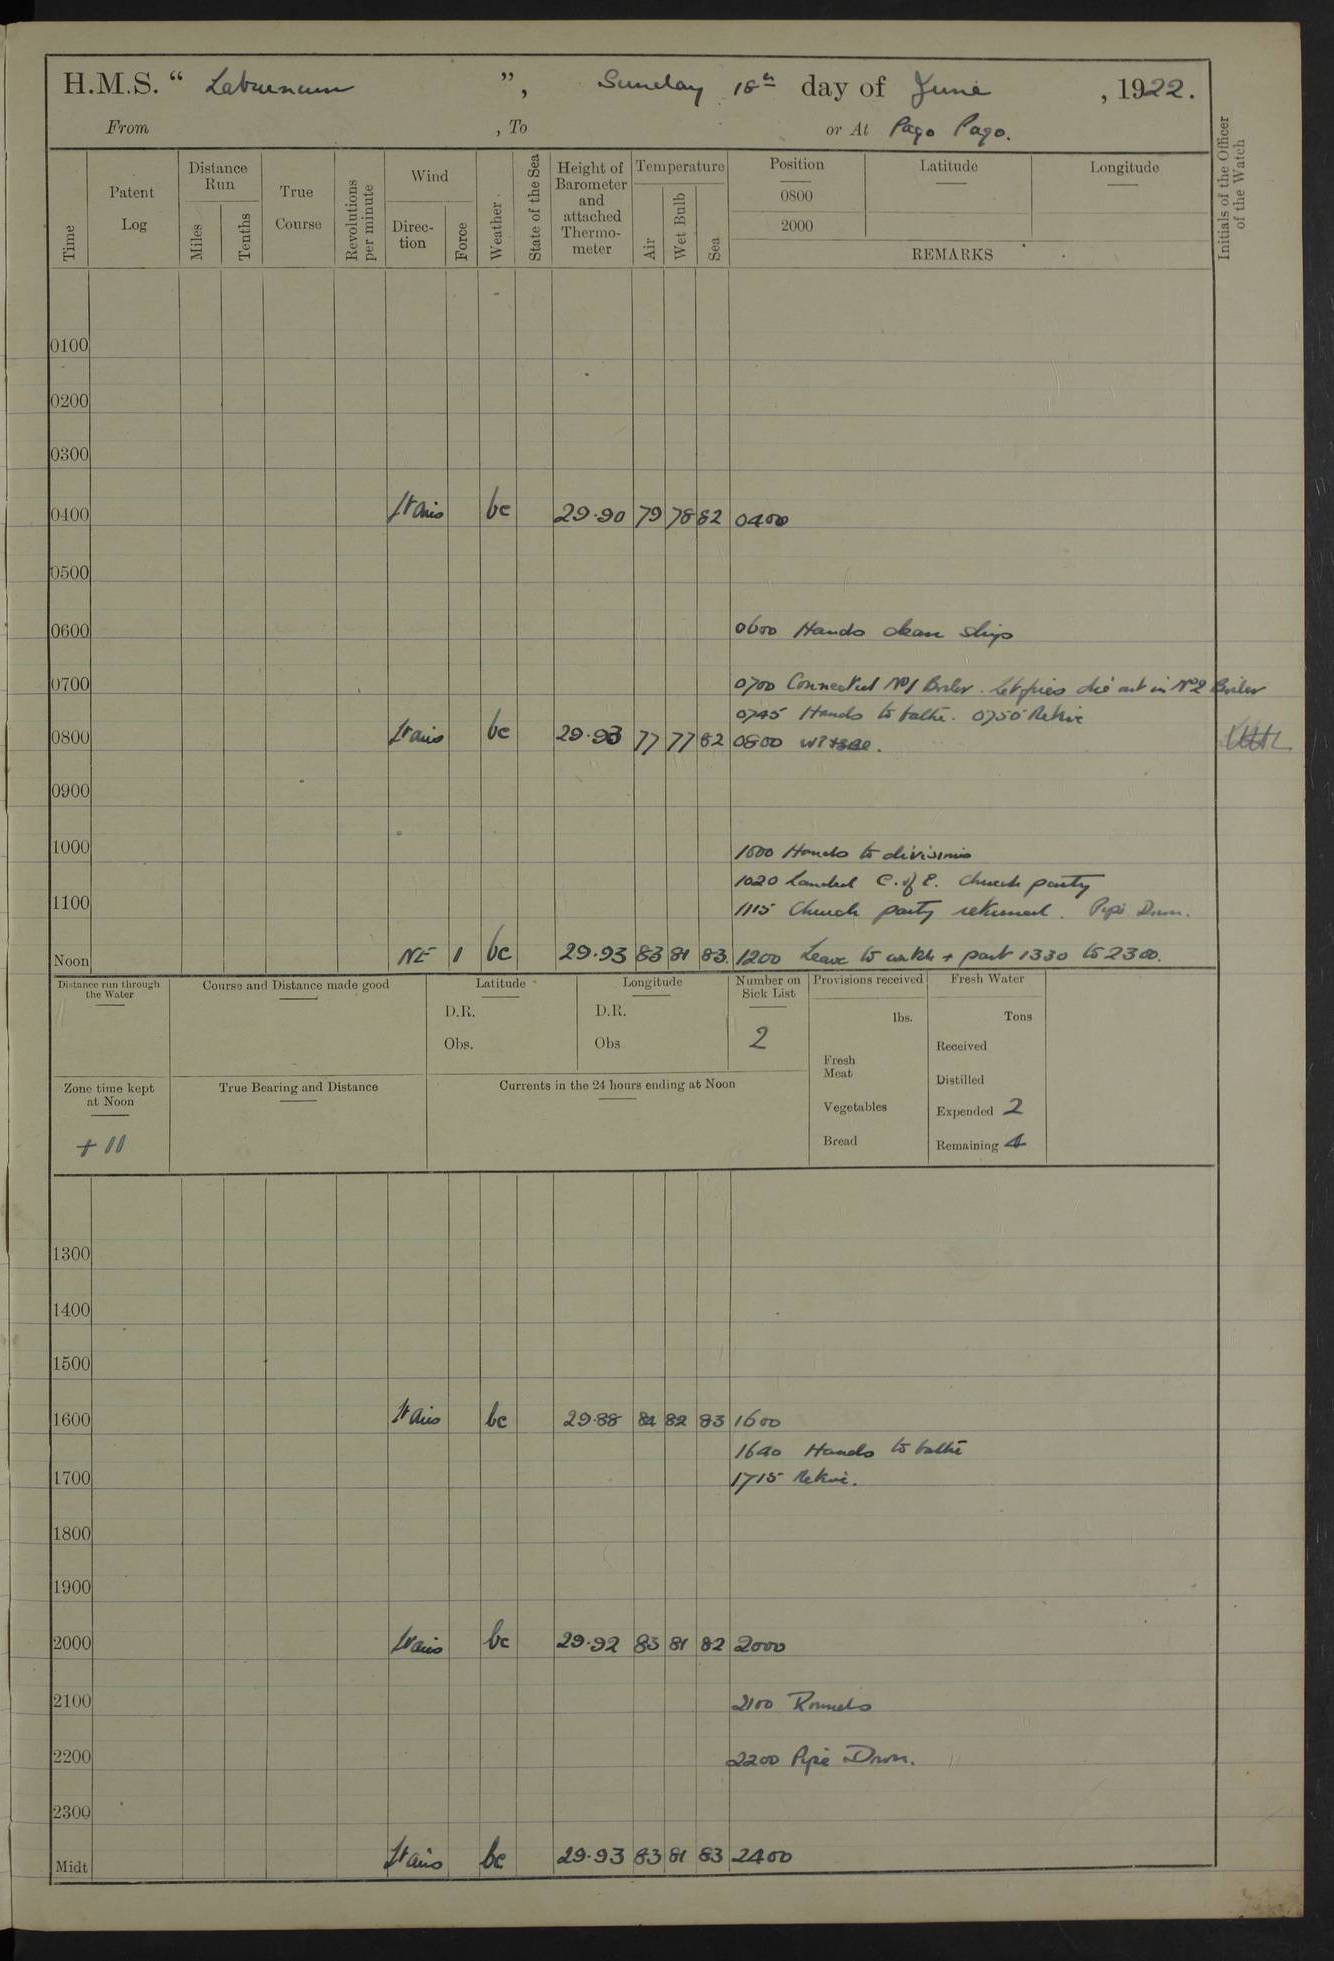 H.M.S. “ Laburnum ”, Sunday 18th day of June , 1922.
From , To or At Pago Pago.
Time Patent Log Distance Run Miles Tenths True Course Revolutions per minute Wind Direc- tion Force Weather State of the Sea Height of Barometer and attached Thermo- meter Temperature Air Wet Bulb Sea Position 0800 2000 Latitude Longitude REMARKS Initials of the Officer of the Watch
0100
0200
0300
0400 Lt airs bc 29.90 79 78 82 0400
0500
0600 0600 Hands clean ship
0700 0700 Connected No1 Boiler. Let fires die out in No2 Boiler
0745 Hands to bathe. 0750 Retire
0800 Lt airs bc 29.93 77 77 82 0800
0900
1000 1000 Hands to divisions
1020 Landed C. of E. Church party
1100 1115 Church party returned. Pipe Down.
Noon NE 1 bc 29.93 83 81 83 1200 Leave to watch + part 1330 to 2300.
Distance run through the Water Course and Distance made good Latitude Longitude Number on Sick List Provisions received Fresh Water
D.R. D.R. lbs. Tons
Obs. Obs 2 Received
Fresh Meat Distilled
Zone time kept at Noon True Bearing and Distance Currents in the 24 hours ending at Noon
Vegetables Expended 2
+ 11 Bread Remaining 4
1300
1400
1500
1600 Lt airs bc 29.88 82 83 1600
1640 Hands to bathe
1700 1715 Retire.
1800
1900
2000 Lt airs bc 29.92 83 81 82 2000
2100 2100 Rounds
2200 2200 Pipe Down.
2300
Midt Lt airs bc 29.93 83 81 83 2400